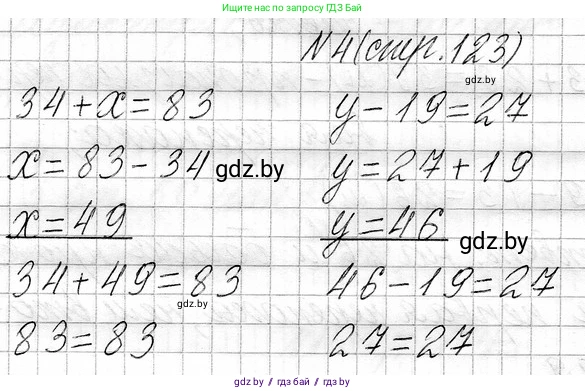 Ищите нас по запросу ГДЗ Бай
№4(стр.123)
gdz.by
34+x=83
x=83-34
gdz.by
x=49
34+49=83
gdz.by
83=83
y-19=27
y=27+19
y=46
gdz.by
46-19=27
27=27
gdz.by / гдз бай / гдз.бай